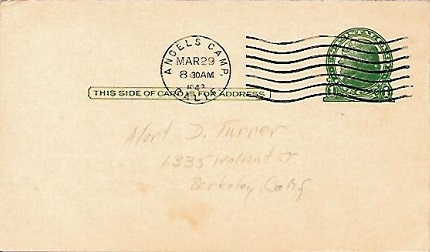 ANGELS CAMP,
MAR 29
8-30AM
CALIF.
THIS SIDE OF CARD IS FOR ADDRESS
Mort D. Turner
1335 Walnut St.
Berkeley, Calif